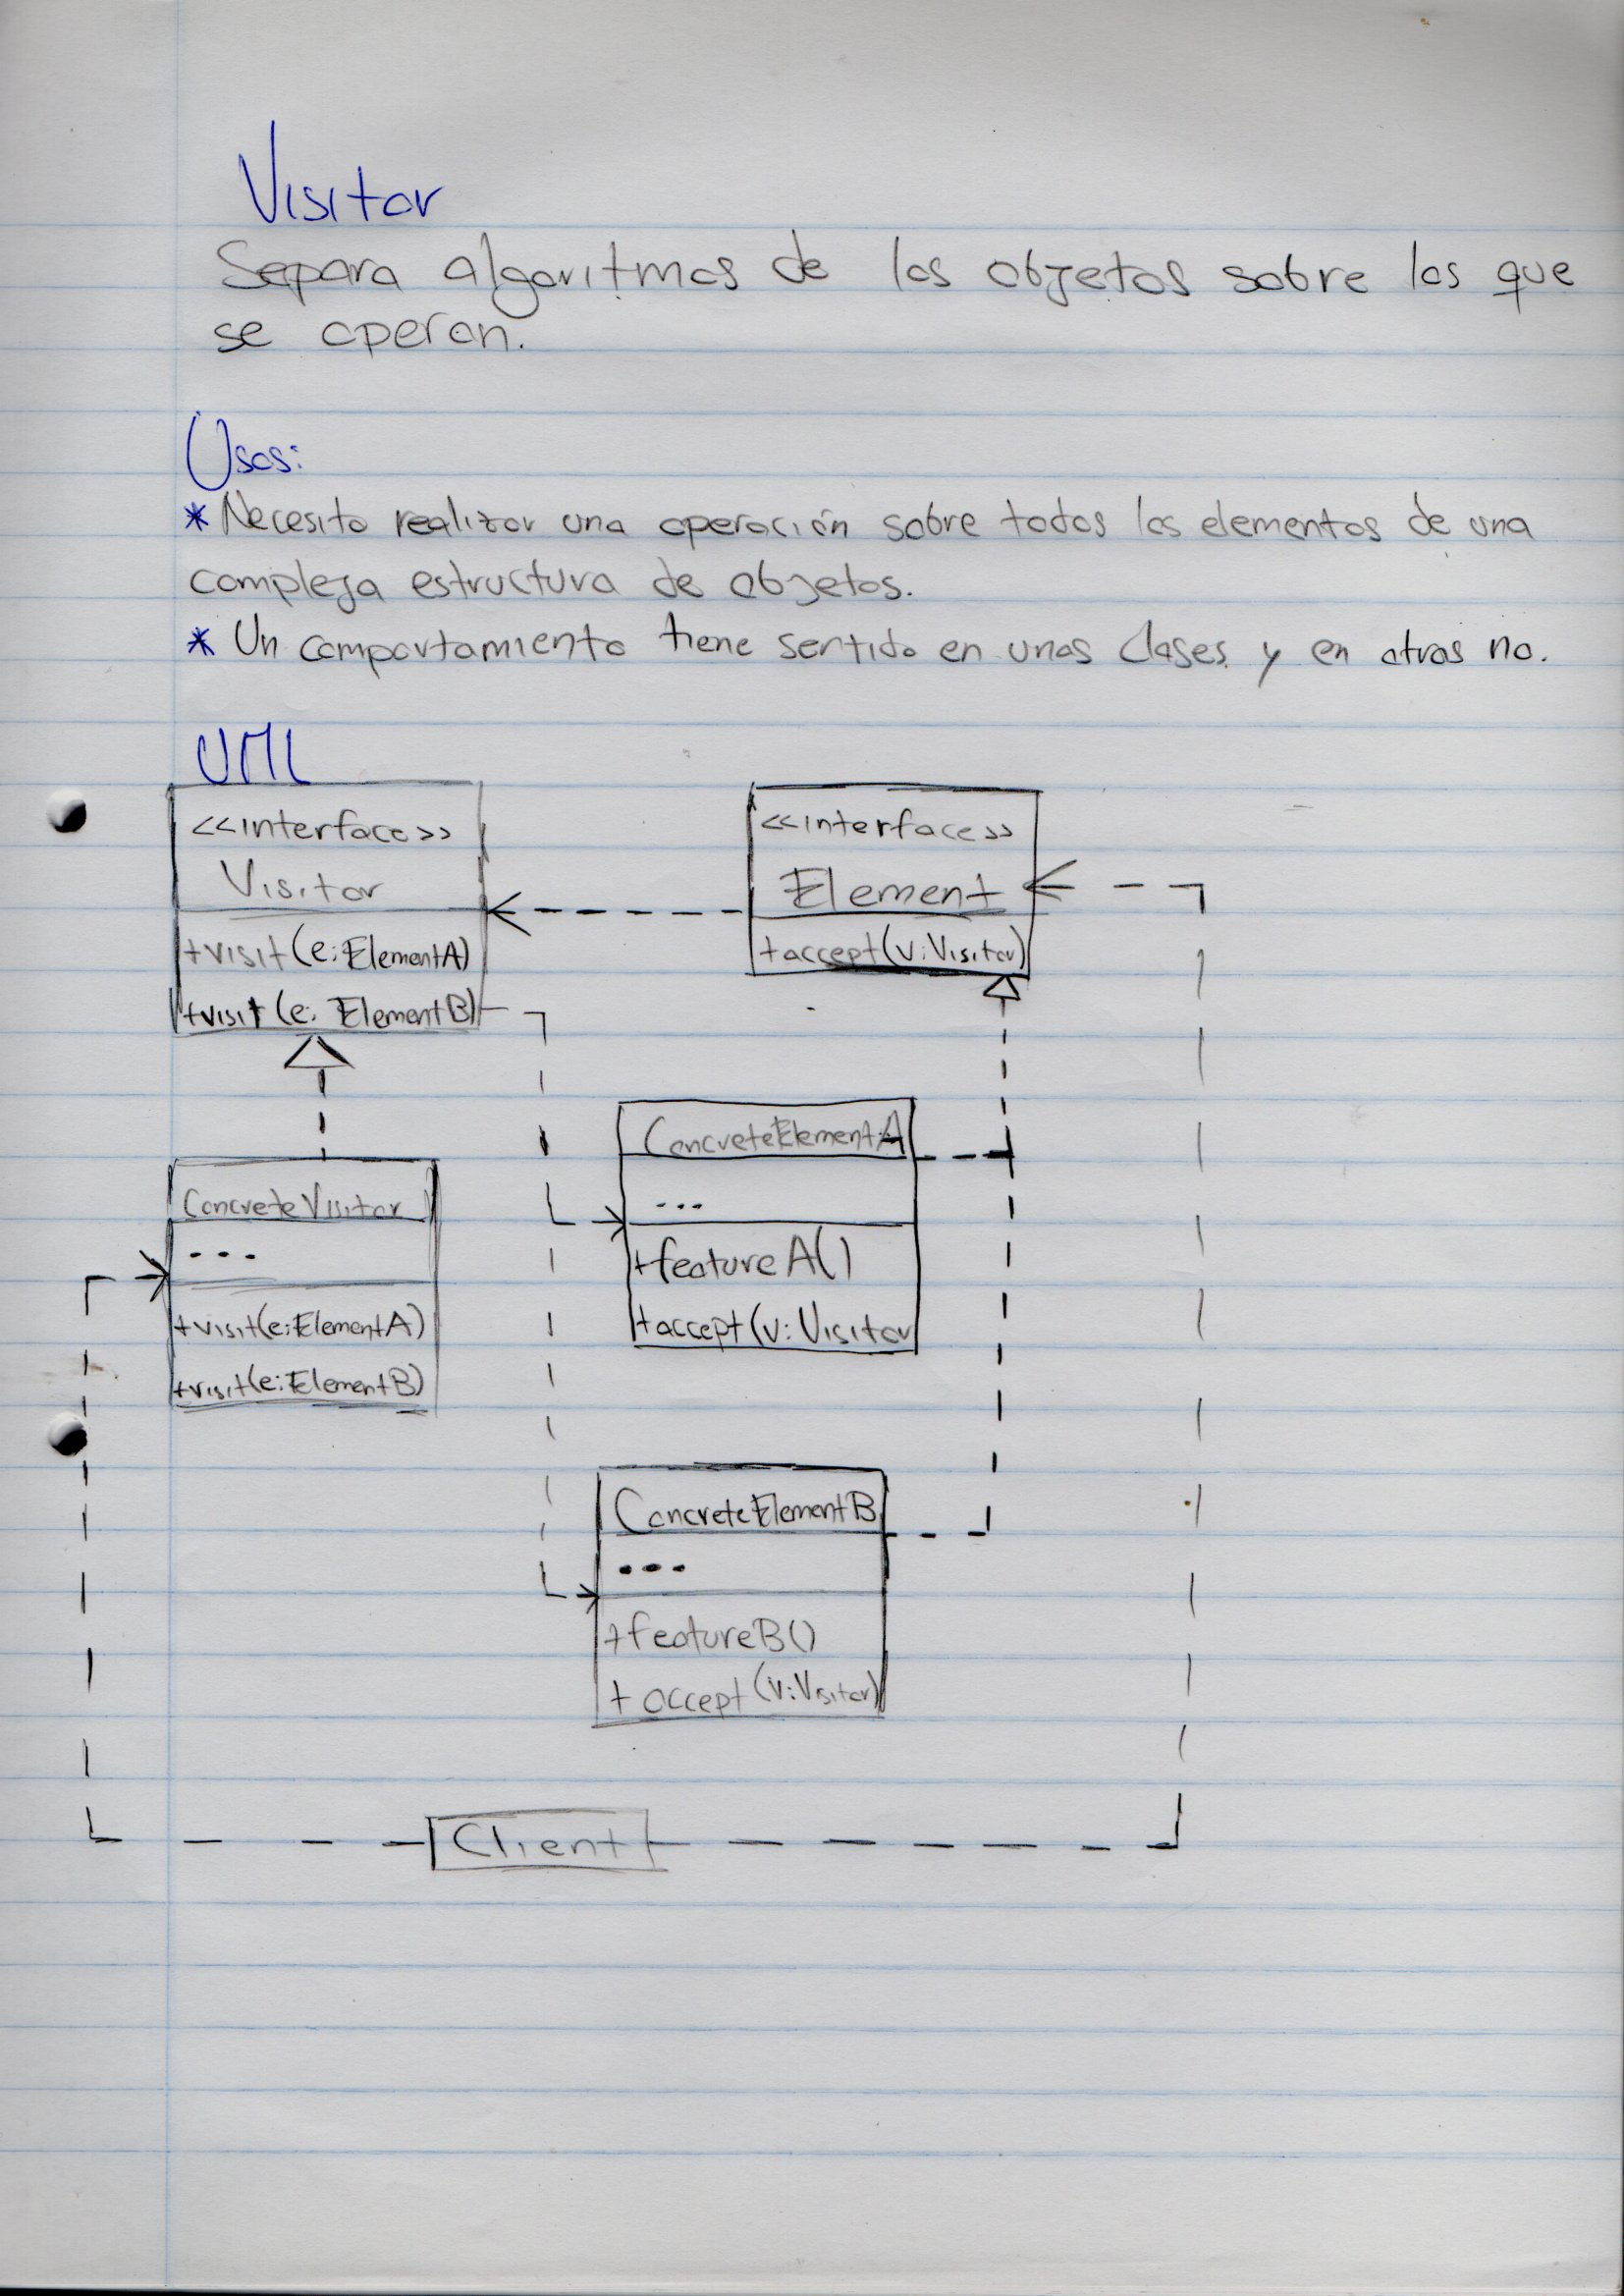 Visitor
Separa algoritmos de los objetos sobre los que
se operan.
Usos:
* Necesito realizar una operación sobre todos los elementos de una
compleja estructura de objetos.
* Un comportamiento tiene sentido en unas clases y en otras no.
UML
<<interface>>
Visitor
+visit(e:ElementA)
+visit(e: ElementB)
<<interface>>
Element
+accept(v:Visitor)
ConcreteElementA
...
+featureA()
+accept(v:Visitor
ConcreteVisitor
...
+visit(e:ElementA)
+visit(e:ElementB)
ConcreteElementB
...
+featureB()
+accept(v:Visitor)
Client